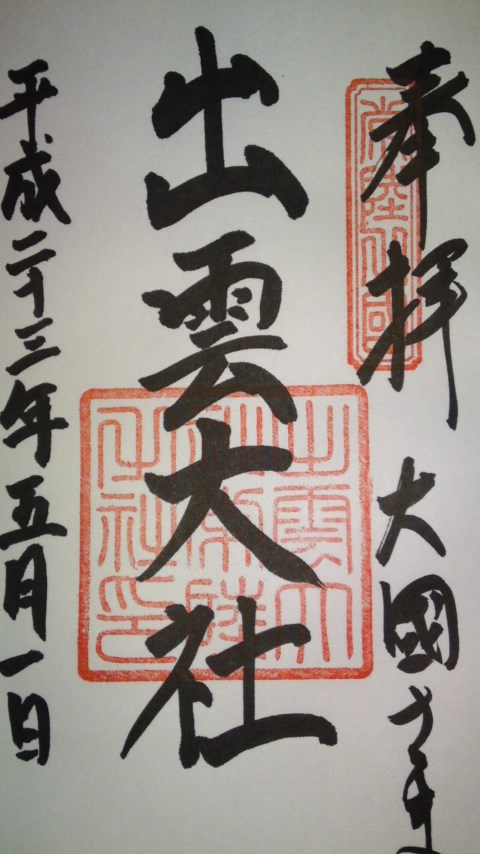 奉拝 大國さま
出雲大社
平成二十三年五月一日
出雲大
社常陸
分社印